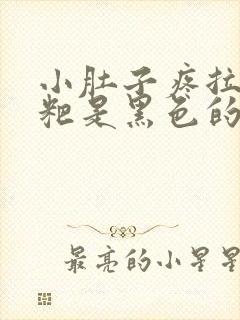 小肚子疼拉
粑是黑色的
最亮的小星星